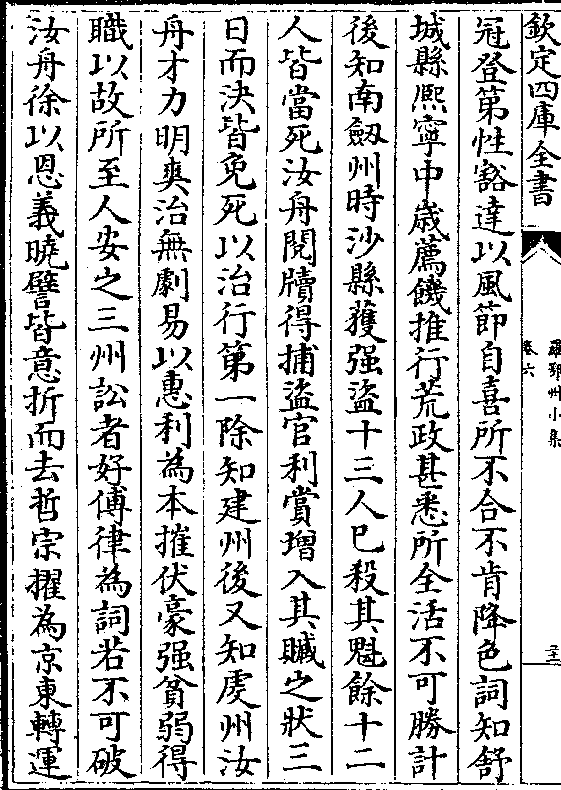 欽定四庫全書
羅鄂州小集
卷六
冠登第性豁達以風節自喜所不合不肯降色詞知舒
城縣熈寧中歳薦饑推行荒政甚悉所全活不可勝計
後知南劔州時沙縣獲强盗十三人巳殺其魁餘十二
人皆當死汝舟閱牘得捕盜官利賞增入其贓之狀三
日而決皆免死以治行第一除知建州後又知䖍州汝
舟才力明爽治無劇易以惠利為本摧伏豪强貧弱得
職以故所至人安之三州訟者好傅律為詞若不可破
汝舟徐以恩義曉譬皆意折而去哲宗擢為京東轉運